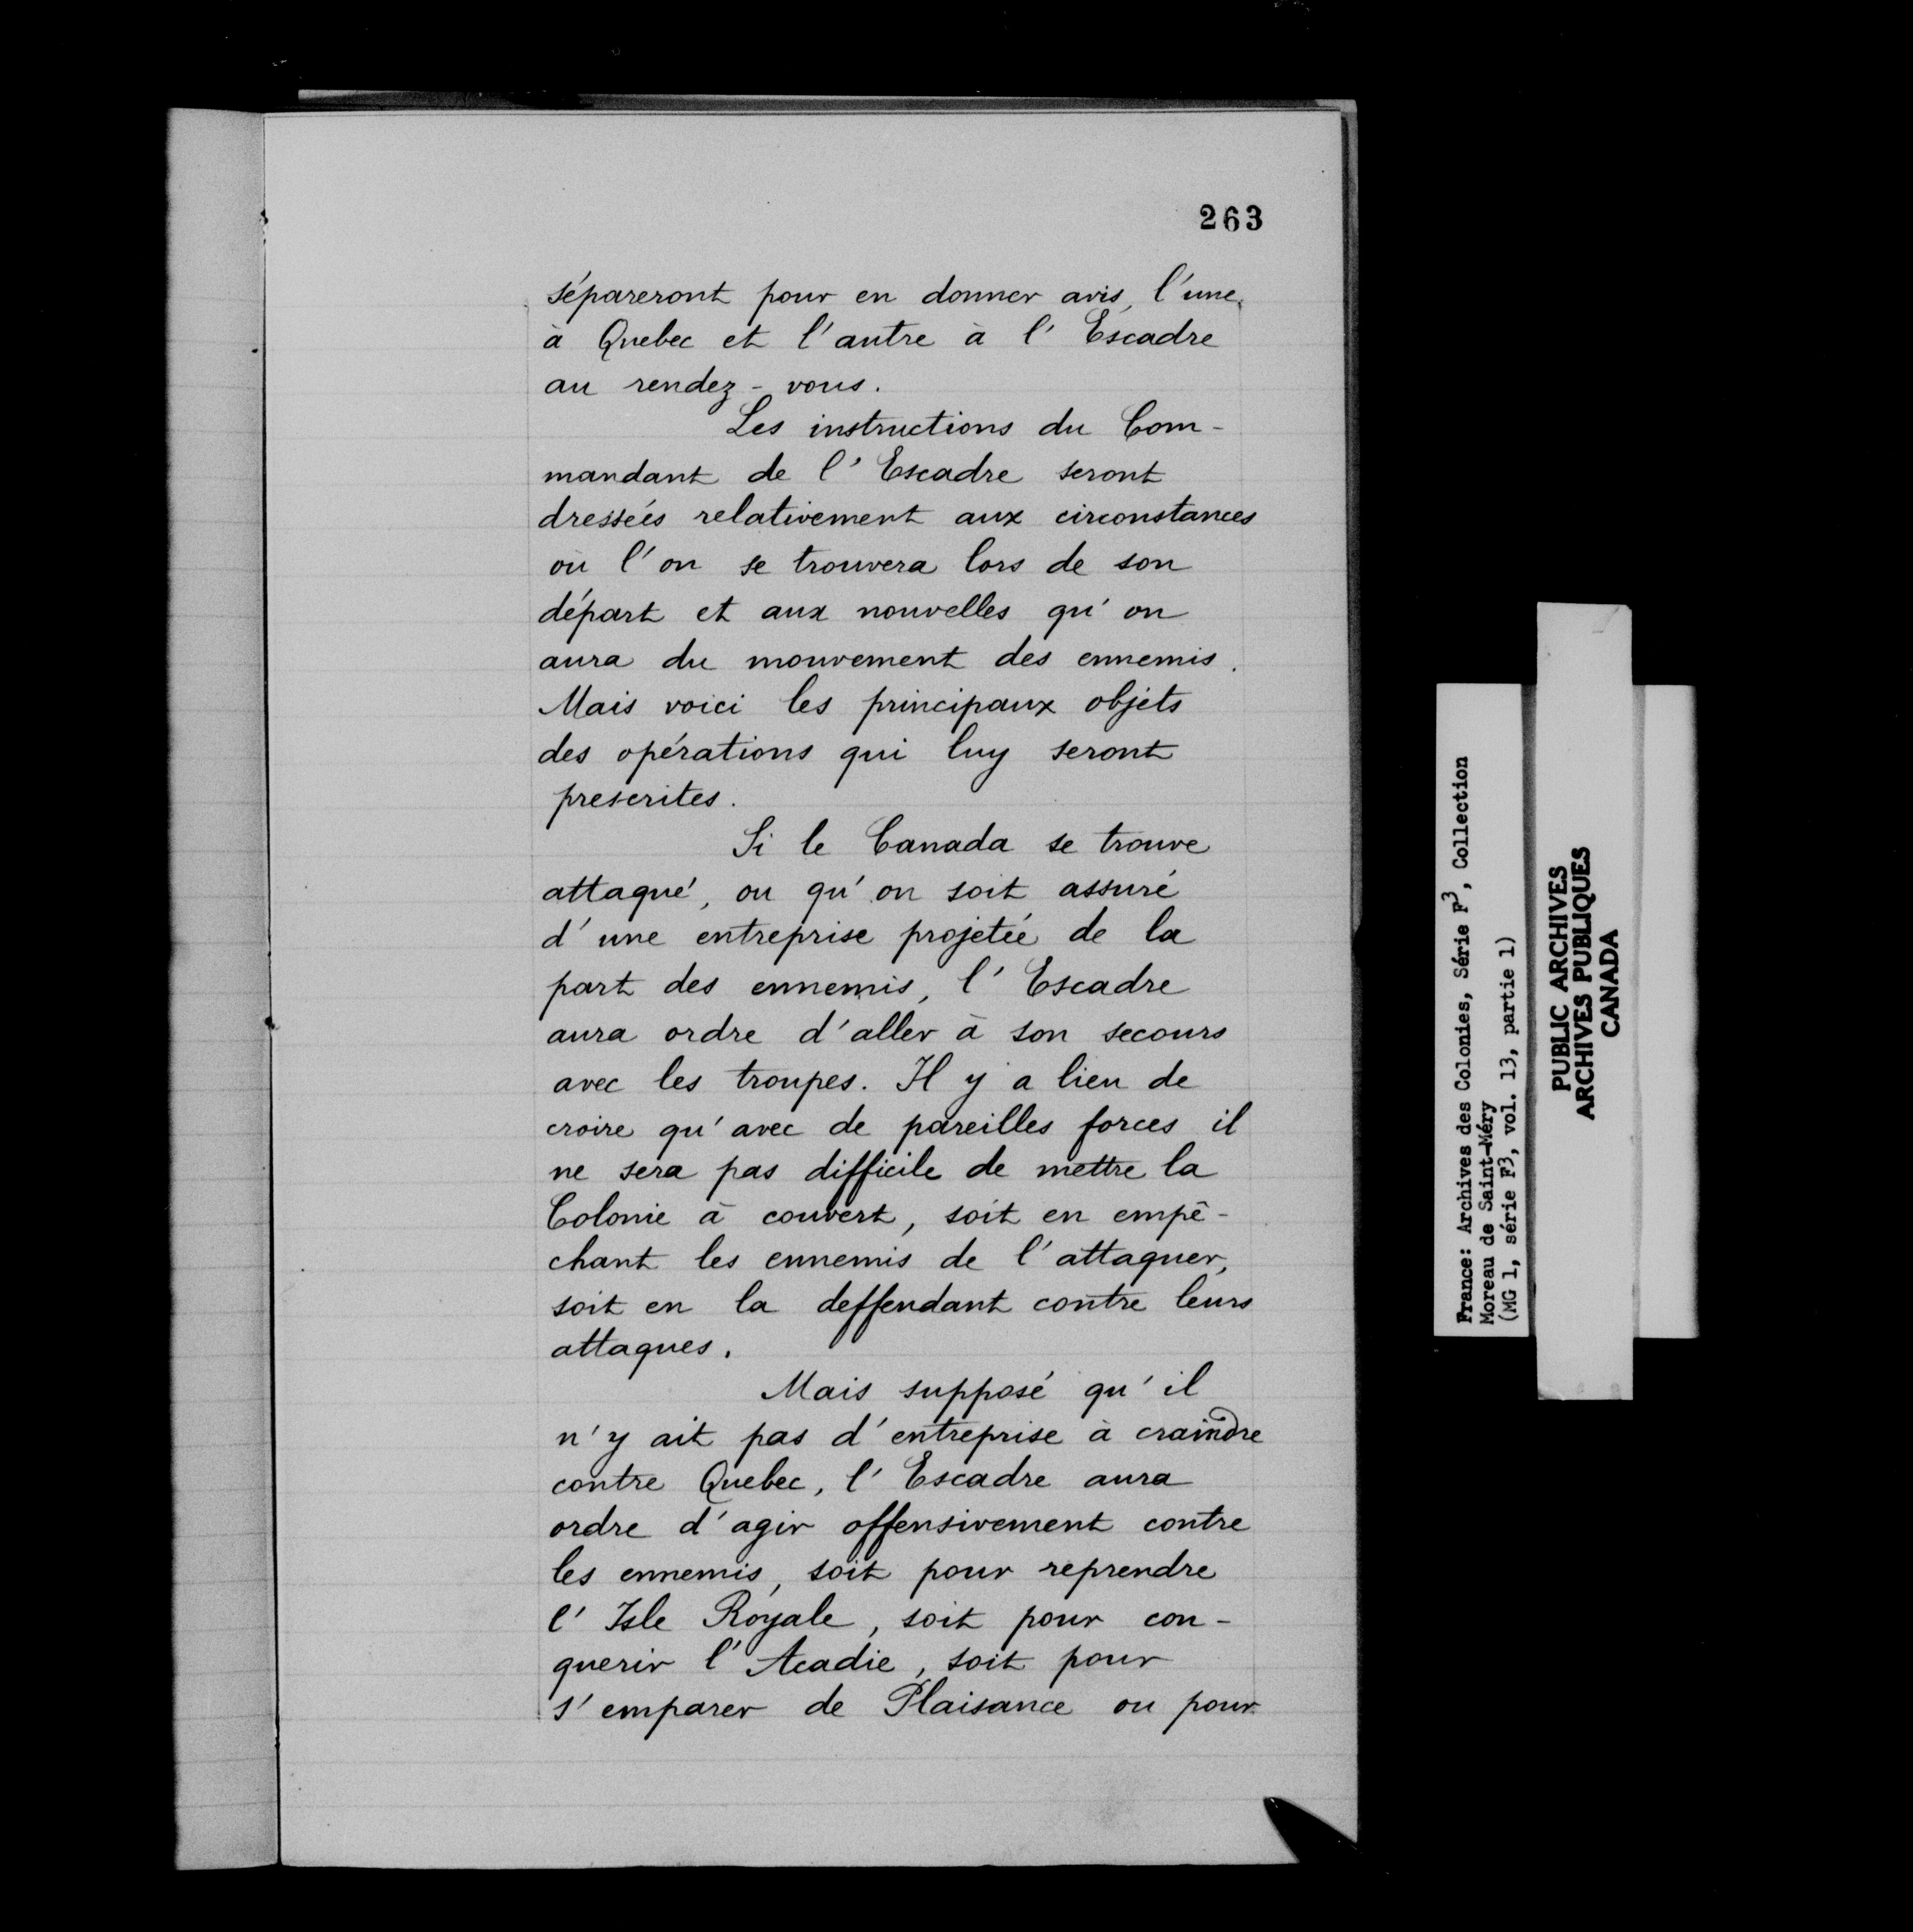 263
sépareront pour en donner avis, l'une
à Quebec et l'autre à l'Escadre
au rendez-vous.
Les instructions du Com-
mandant de l'Escadre seront
dressées relativement aux circonstances
où l'on se trouvera lors de son
départ et aux nouvelles qu'on
aura du mouvement des ennemis.
Mais voici les principaux objets
des opérations qui luy seront
prescrites.
Si le Canada se trouve
attaqué, ou qu'on soit assuré
d'une entreprise projetée de la
part des ennemis, l'Escadre
aura ordre d'aller à son secours
avec les troupes. Il y a lieu de
croire qu'avec de pareilles forces il
ne sera pas difficile de mettre la
Colonie à couvert, soit en empê-
chant les ennemis de l'attaquer,
soit en la deffendant contre leurs
attaques.
Mais supposé qu'il
n'y ait pas d'entreprise à craindre
contre Quebec, l'Escadre aura
ordre d'agir offensivement contre
les ennemis, soit pour reprendre
l'Isle Royale, soit pour con-
querir l'Acadie, soit pour
s'emparer de Plaisance ou pour
France: Archives des Colonies, Série F3, Collection
Moreau de Saint-Méry
(MG 1, série F3, vol. 13, partie 1)
PUBLIC ARCHIVES
ARCHIVES PUBLIQUES
CANADA